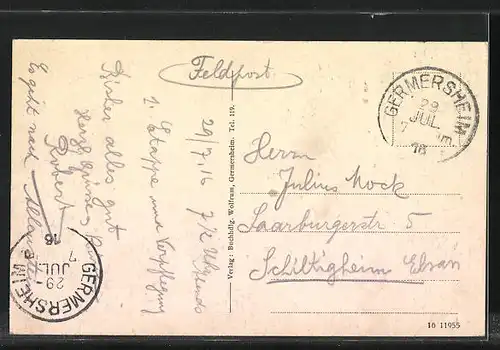 Feldpost
29/7.16 7½ Uhr abends
1. Etappe und Verpflegung
Bisher alles gut
Herzl. Gruss
Robert
Es geht nach
Verlag: Buchhdlg. Wolfram, Germersheim. Tel. 119.
GERMERSHEIM
29
JUL.
7
16
Herrn
Julius Mock
Saarburgerstr 5
Schiltigheim Elsass
GERMERSHEIM
29
JUL
7
16
16 11955